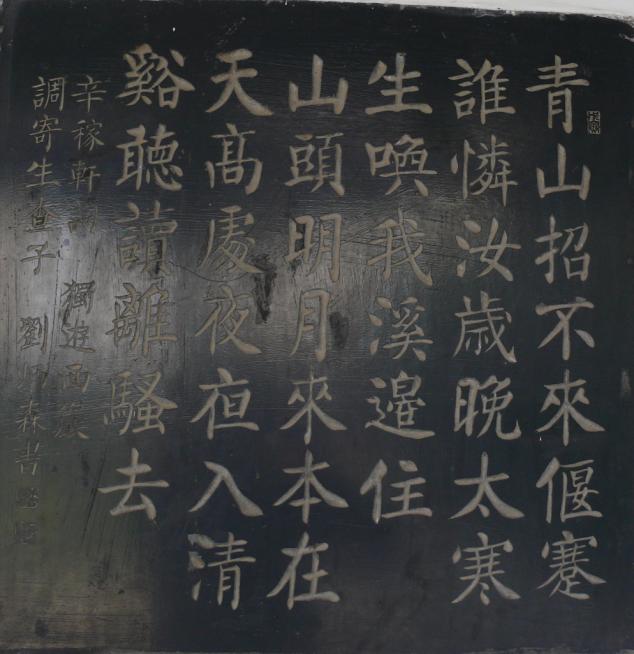 青山招不來偃蹇
誰憐汝歲晚太寒
生喚我溪邊住
山頭明月來本在
天高處夜夜入清
谿聽讀離騷去
辛稼軒詞 獨遊西巖
調寄生查子 劉 森書